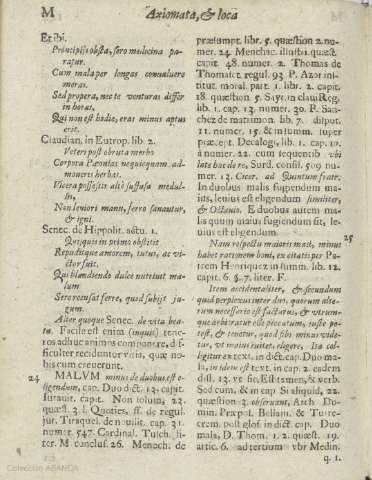 M
Axiomata, & loca
M
Et ibi.
Principijs obsta, sero medicina pa-
ratur.
Cum mala per longas convaluere
moras.
Sed propera, nec te venturas differ
in horas,
Qui non est hodie, cras minus aptus
erit.
Claudian. in Eutrop. lib. 2.
Corpora Pæonias nequicquam ad-
moveris herbas.
Vlcera possessis altè suffusa medul-
lis,
Non leviori manu, ferro sanantur,
& igni.
Senec. de Hippolit. actu. 1.
Quisquis in primo obstitit
Repulitque amorem, tutus, ac vi-
ctor fuit.
Qui blandiendo dulce nutriuit ma-
lum
Sero recusat ferre, quod subijt ju-
gum.
Aliter quoque Senec. de vita bea
ta. Facile est enim (inquit) tene-
ros adhuc animos componere, dif-
ficulter reciduntur vitia, quæ no-
bis cum creverunt.
24 MALVM minus de duobus est e-
ligendum, cap. Duo dist. 13. capit.
Iuravit. capit. Non solum, 22.
quæst. 3. l. Quoties, ff. de regul.
jur. Tiraquel. de nouilit. cap. 31.
numer. 547. Cardinal. Tusch. lit-
ter. M conclus. 26. Menoch. de
præsumpt. libr. 5. quæstion 2. nu-
mer. 24. Menchac. illust. quæst.
capit. 48. numer. 2. Thomas de
Thomasset. regul. 93. P. Azor insti-
tut. moral. part. 1. libr. 2. capit.
18. quæstion 5. Sayr. in clau. Reg.
lib. 1. cap. 13. numer. 30. P. San-
chez de matrimon. lib. 7. disput.
11. numer. 15. & in summ. super
præcept. Decalogi, lib. 1. cap. 10.
á numer. 22. cum sequentib
late hac de re, Surd. consil. 509 nu-
mer. 13. Cicer. ad Quintum fratr.
In duobus malis fugiendum ma-
ius, levius est eligendum similiter,
& Octauio. E duobus autem ma-
lis quum maius fugiendum sit, le-
uius est eligendum.
25
Nam respectu maioris mali, minus
habet rationem boni, ex citatis per Pa-
trem Henriquez in summ. lib. 12.
capit. 6. §. 7. liter. F.
Item accidentaliter, & secundum
quid perplexus inter duo, quorum alte-
rum necessario est facturus, & vtrum-
que arbitratur esse peccatum, iuste po-
test, & tenetur, quod sibi minus vide-
tur, vt maius uitet, eligere. Ita col-
ligitur ex text. in dict. cap. Duo ma-
la, in idem est text. in cap. 2. eadem
dist. 13.
Sed cum, & in cap Si aliquid, 22.
quæstion 2. observant, Arch Do-
min. Præpos. Bellam. & Turre-
crem. post glos. in dict. cap. Duo
mala, D. Thom. 1. 2. quæst. 19.
artic. 6. ad tertium vbi Medin.
q. 1.
Colección ABANCA